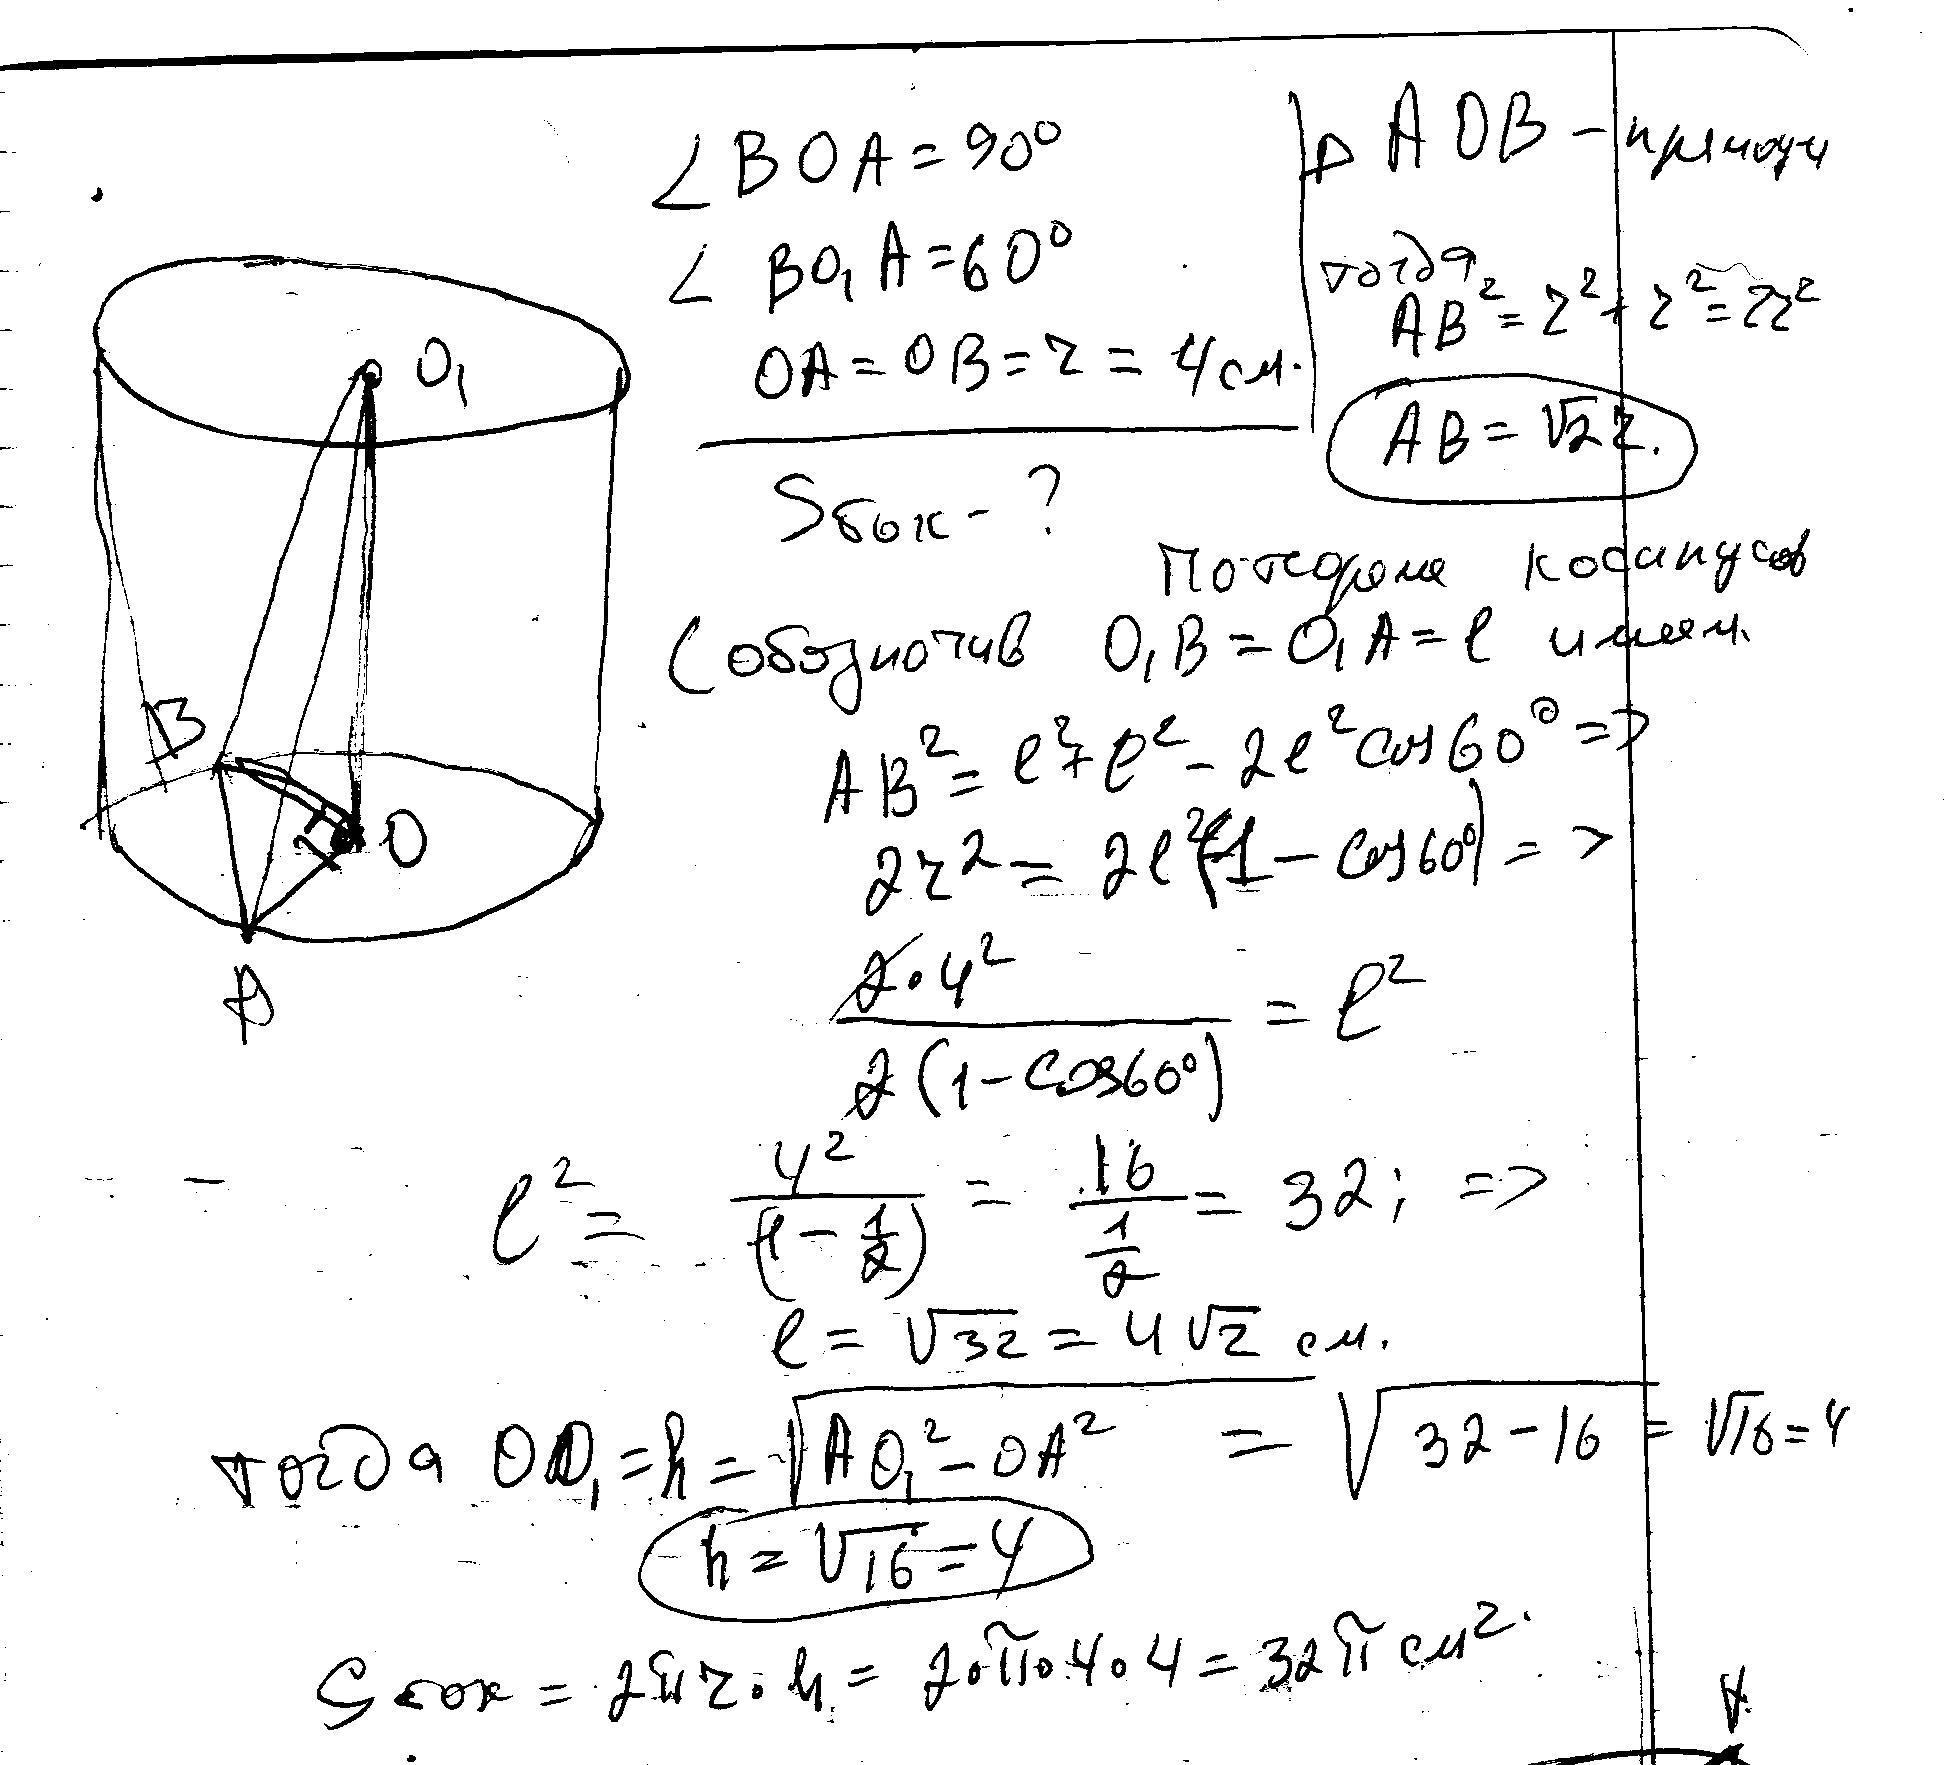 ∠BOA = 90°
∠BO₁A = 60°
OA = OB = r = 4 см.
Sбок - ?
△ AOB - прямоуг
тогда
AB² = r² + r² = 2r²
AB = √2 r.
По теореме косинусов
(обозначив O₁B = O₁A = l имеем.
AB² = l² + l² - 2l² cos60° =>
2r² = 2l²(1 - cos60°) =>
2·4² / 2(1 - cos60°) = l²
l² = 4² / (1 - 1/2) = 16 / 1/2 = 32; =>
l = √32 = 4√2 см.
тогда OO₁ = h = √AO₁² - OA² = √32 - 16 = √16 = 4
h = √16 = 4
Sбок = 2πr·h = 2·π·4·4 = 32π см².
O₁
B
O
A